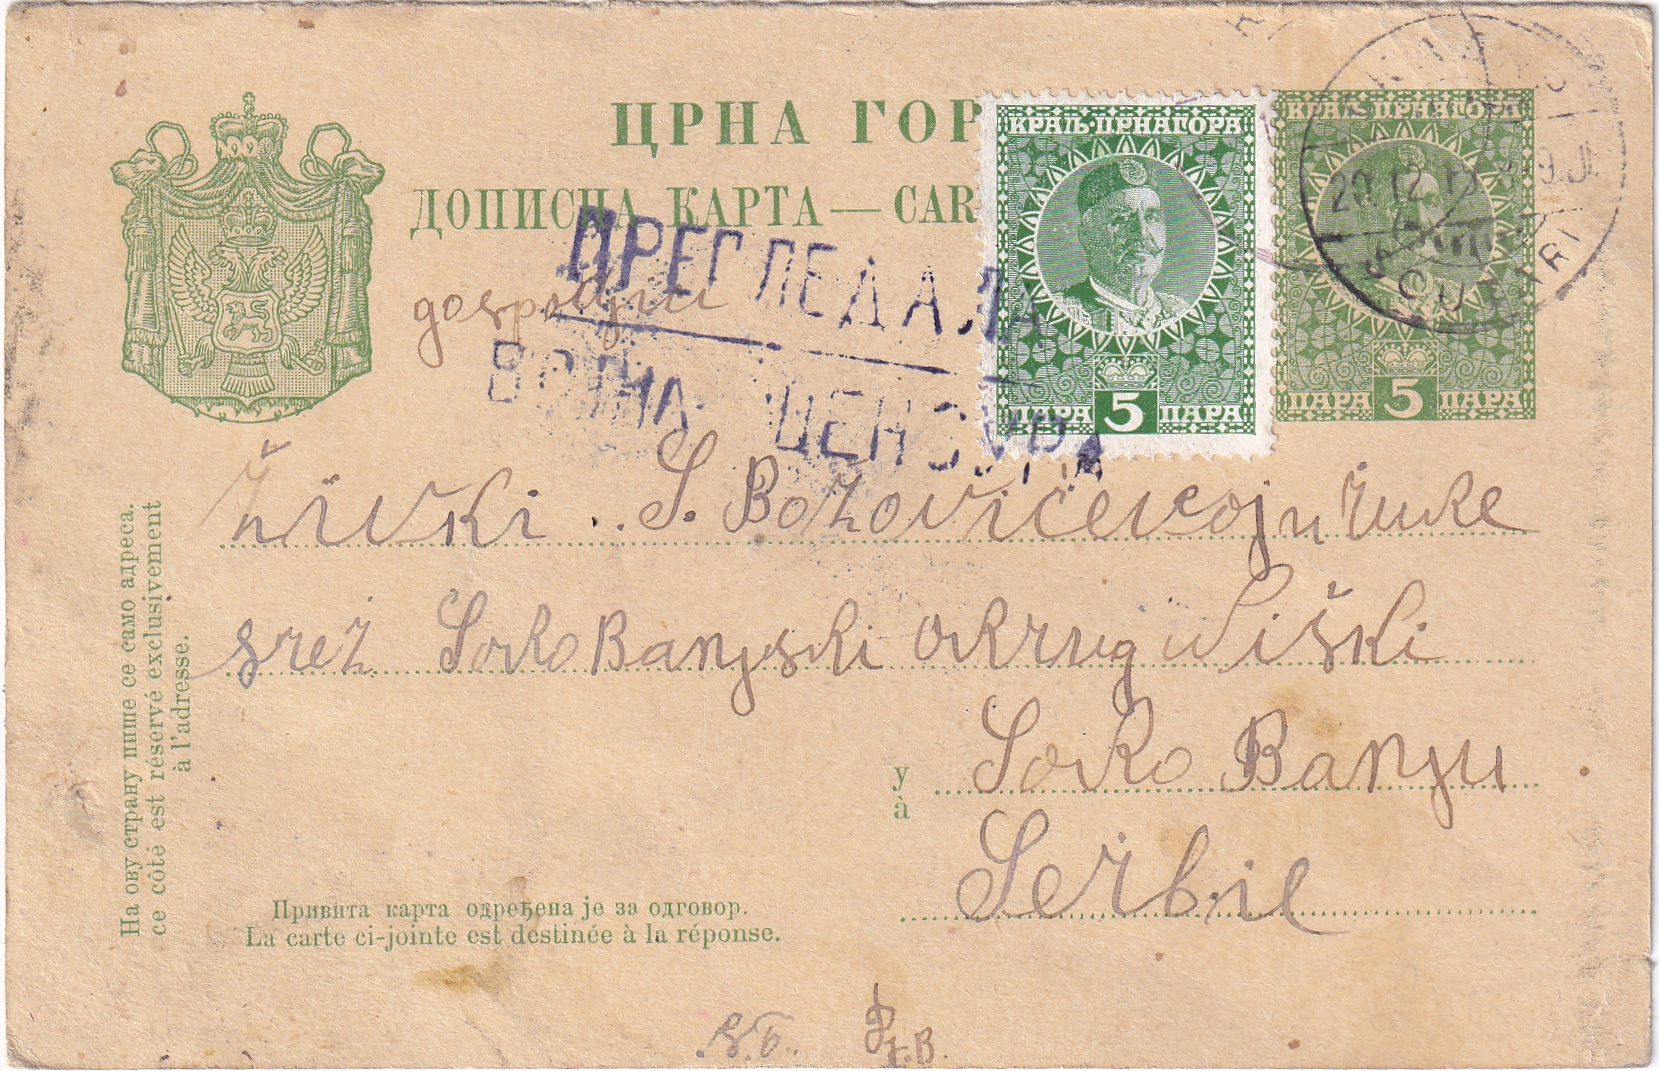 ЦРНА ГОР
ДОПИСНА КАРТА — CAR
КРАЉ. ЦРНАГОРА
ПАРА 5 ПАРА
КРАЉ. ЦРНАГОРА
ПАРА 5 ПАРА
20.12.
SCUTARI
ПРЕГЛЕДАЛА
ВОЈНА ЦЕНЗУРА
Živki S. Božovičevoj
srez Soko Banjski okrug Niški
у Soko Banju
à
Serbie
На ову страну пише се само адреса.
ce côté est réservé exclusivement
à l'adresse.
Привита карта одређена је за одговор.
La carte ci-jointe est destinée à la réponse.